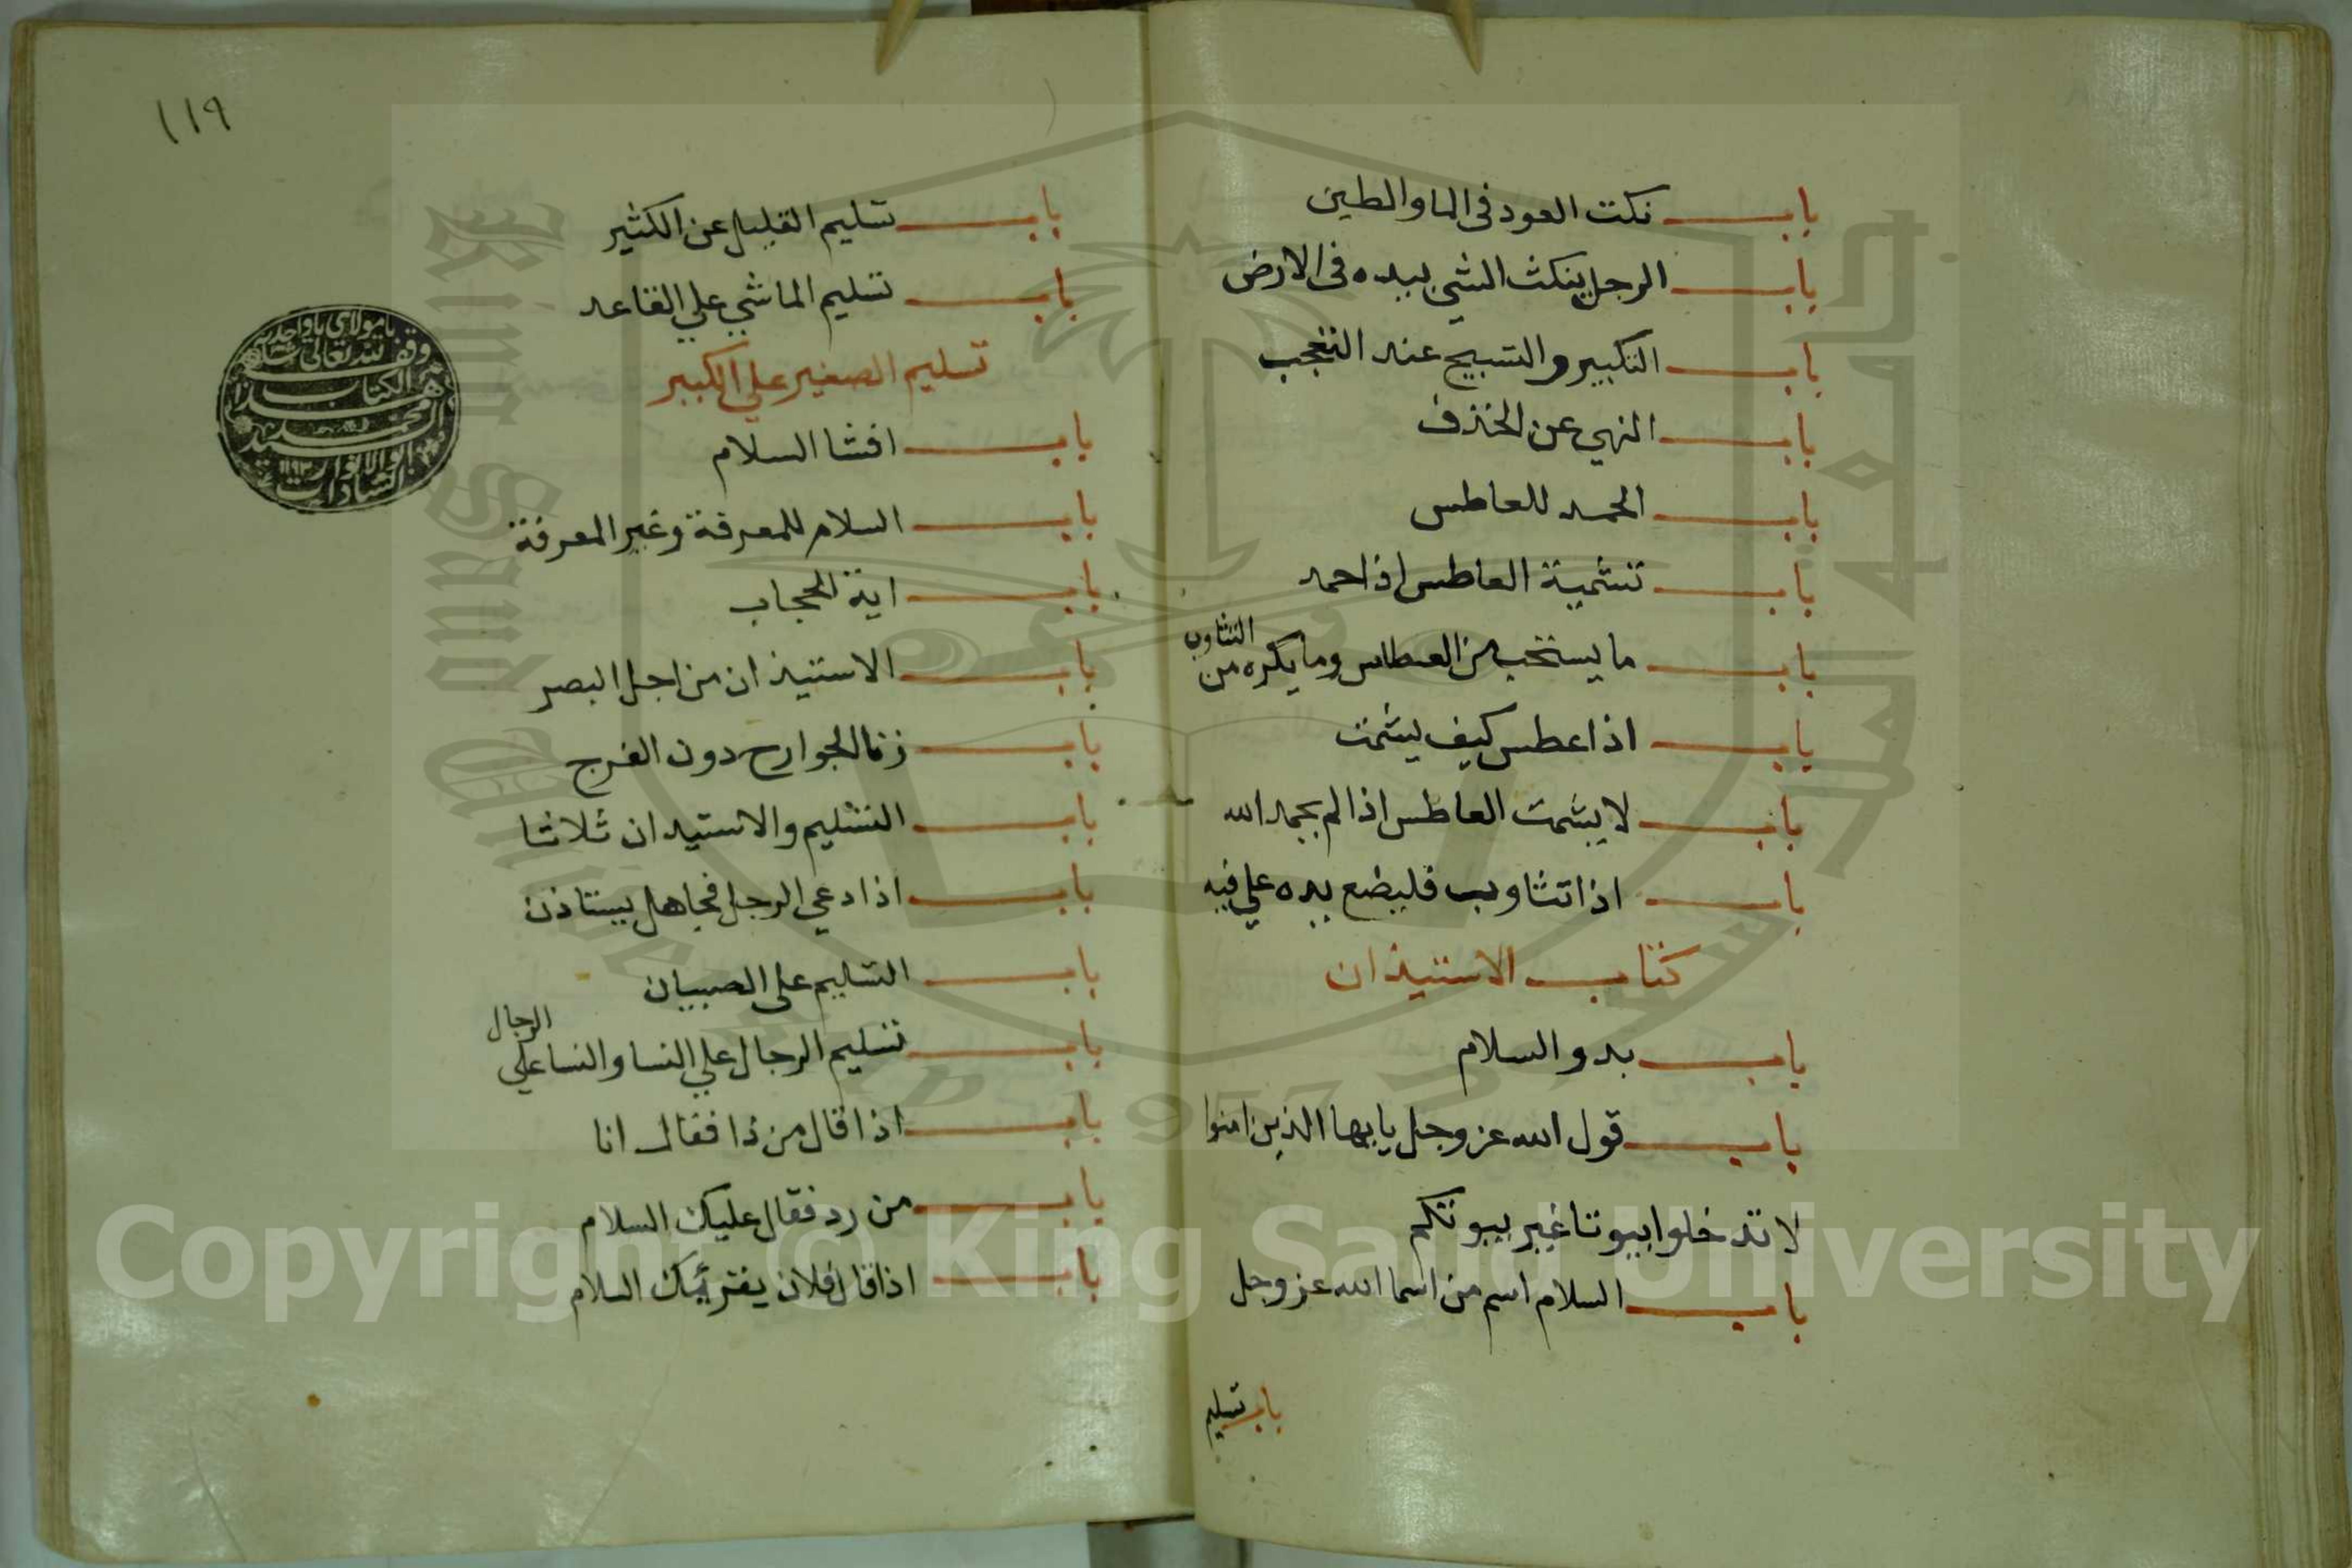 باب نكت العود فى الما والطين
باب الرجل ينكث الشي بيده فى الارض
باب التكبير والتسبيح عند التعجب
باب النهي عن الخذف
باب الحمد للعاطس
باب تشمية العاطس اذا حمد
باب ما يستحب من العطاس وما يكره من التثاوب
باب اذا عطس كيف يشمت
باب لا يشمت العاطس اذا لم يحمد الله
باب اذا تثاوب فليضع يده علي فيه
كتاب الاستيذان
باب بدو السلام
باب قول الله عز وجل يايها الذين امنوا
لا تدخلوا بيوتا غير بيوتكم
باب السلام اسم من اسما الله عز وجل
باب تسليم
١١٩
باب تسليم القليل عن الكثير
باب تسليم الماشي علي القاعد
تسليم الصغير علي الكبير
باب افشا السلام
باب السلام للمعرفة وغير المعرفة
باب اية الحجاب
باب الاستيذان من اجل البصر
باب زنا الجوارح دون الفرج
باب التسليم والاستيدان ثلاثا
باب اذا دعي الرجل فجا هل يستاذن
باب التسليم على الصبيان
باب تسليم الرجال علي النسا والنسا علي الرجال
باب اذا قال من ذا فقال انا
باب من رد فقال عليك السلام
باب اذا قال فلان يقرئيك السلام
يا مولاي يا واحد
وقف لله تعالى
هذا الكتاب
محمد
ابو الانوار
السادات
١١٩٣
Copyright © King Saud University
King Saud University
جامعة الملك سعود
1957